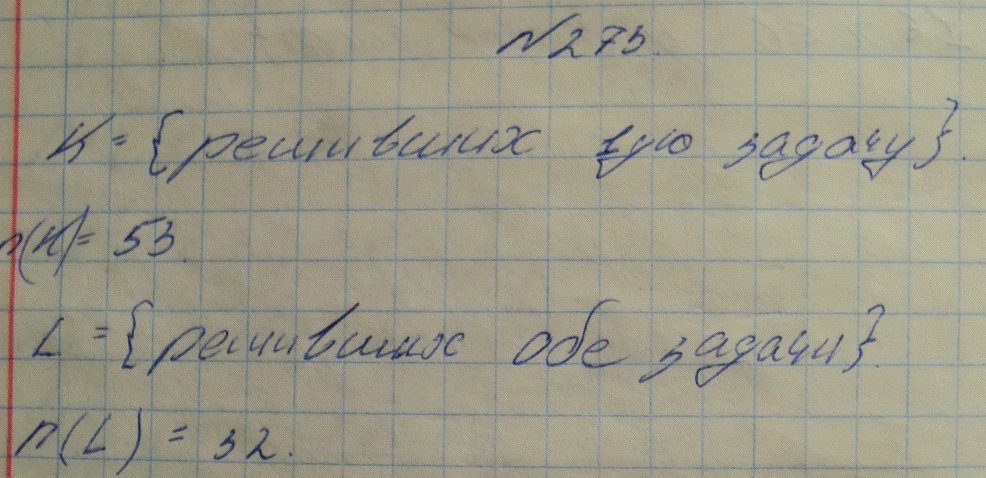 №273.
K = {решивших 1ую задачу}.
n(K) = 53.
L = {решивших обе задачи}.
n(L) = 32.